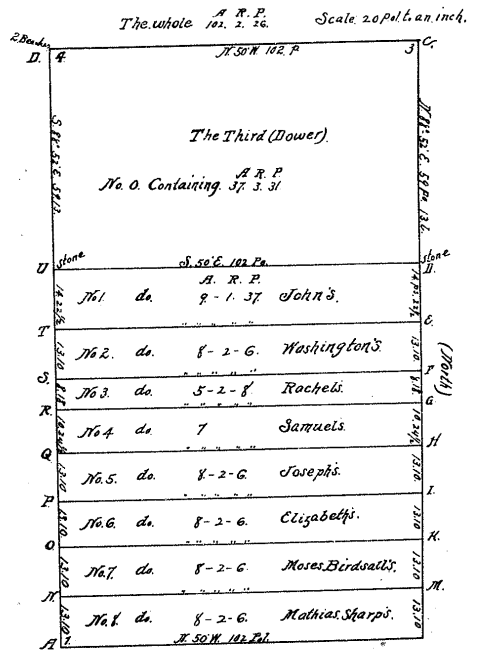 The whole A. R. P. 102. 2. 26.
Scale. 20 pol. to an inch.
2. Beeches
D. 4. N. 50 W. 102. P. 3 C.
The Third (Dower).
No. 0. Containing. A R. P. 37. 3. 31
U stone S. 50 E. 102 Po. stone D.
A. R. P.
14.22½ No 1. do. 9. - 1. 37. John's.
T E.
13.10 No 2. do. 8 - 2 - 6. Washington's. 13.10
S. F (North)
8.18 No 3. do. 5 - 2 - 8. Rachels.
R. G
10.24½ No 4 do. 7 Samuels. 10.24½
Q H
13.10 No. 5. do. 8. - 2 - 6. Joseph's. 13.10
P. I.
13.10 No. 6. do. 8 - 2 - 6. Elizabeth's. 13.10
O K.
13.10 No. 7. do. 8 - 2 - 6. Moses. Birdsall's. 13.10
N. M.
13.10 No. 8. do. 8 - 2 - 6. Mathias. Sharp's. 13.10
A 1. N. 50 W. 102 Pol.